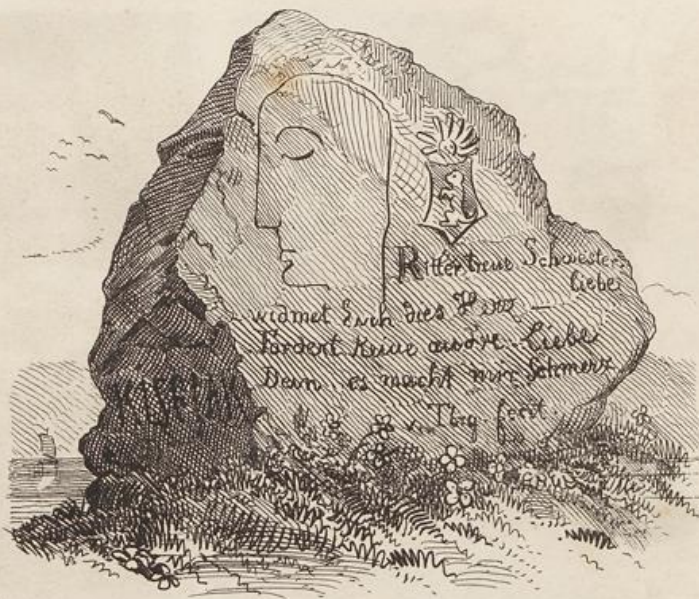 Ritter, treue Schwester-
liebe
widmet Euch dies Herz —
Fordert keine andre Liebe
Denn es macht mir Schmerz
v. Tbg. fecit.